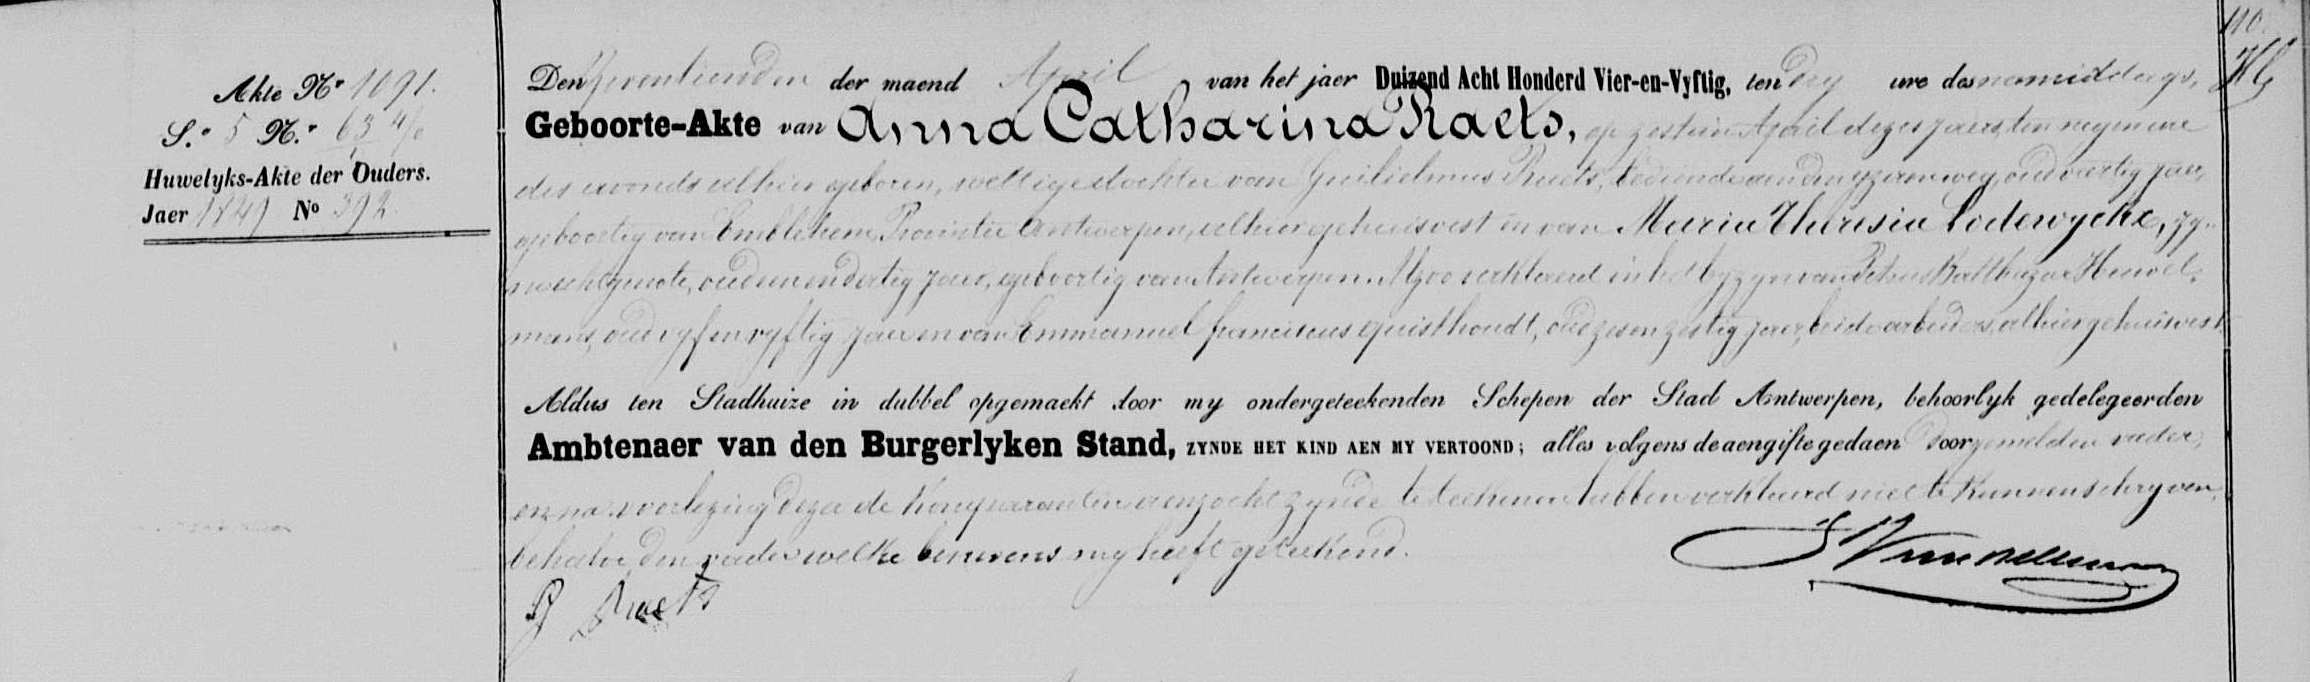 Akte Nr 1091.
S.e 5 N.r 63 4/0
Huwelyks-Akte der Ouders.
Jaer 1849 No 392.
Den zeventienden der maend April van het jaer Duizend Acht Honderd Vier-en-Vyftig, ten dry ure des namiddags,
Geboorte-Akte van Anna Catharina Raets, op zestien April dezes jaers, ten negen ure
des avonds alhier geboren, wettige dochter van Guilielmus Raets, bediende aen den yzeren weg, oud veertig jaer,
geboortig van Emblehem, Provintie Antwerpen, alhier gehuisvest en van Maria Theresia Lodewyckx, zy-
ne echtgenote, oud een en dertig jaer, geboortig van Antwerpen. Alzoo verklaerd in het byzyn van Petrus Balthazar Heuvel-
mans, oud vyf en vyftig jaer en van Emmanuel franciscus Quisthoudt, oud zes en zestig jaer, beide arbeiders, alhier gehuisvest.
Aldus ten Stadhuize in dubbel opgemaekt door my ondergeteekenden Schepen der Stad Antwerpen, behoorlyk gedelegeerden
Ambtenaer van den Burgerlyken Stand, ZYNDE HET KIND AEN MY VERTOOND; alles volgens de aengifte gedaen door gemelden vader,
en na voorlezing dezer de Komparanten aenzocht zynde te teekenen hebben verklaerd niet te kunnen schryven,
behalve den vader welke benevens my heeft geteekend.
G Raets